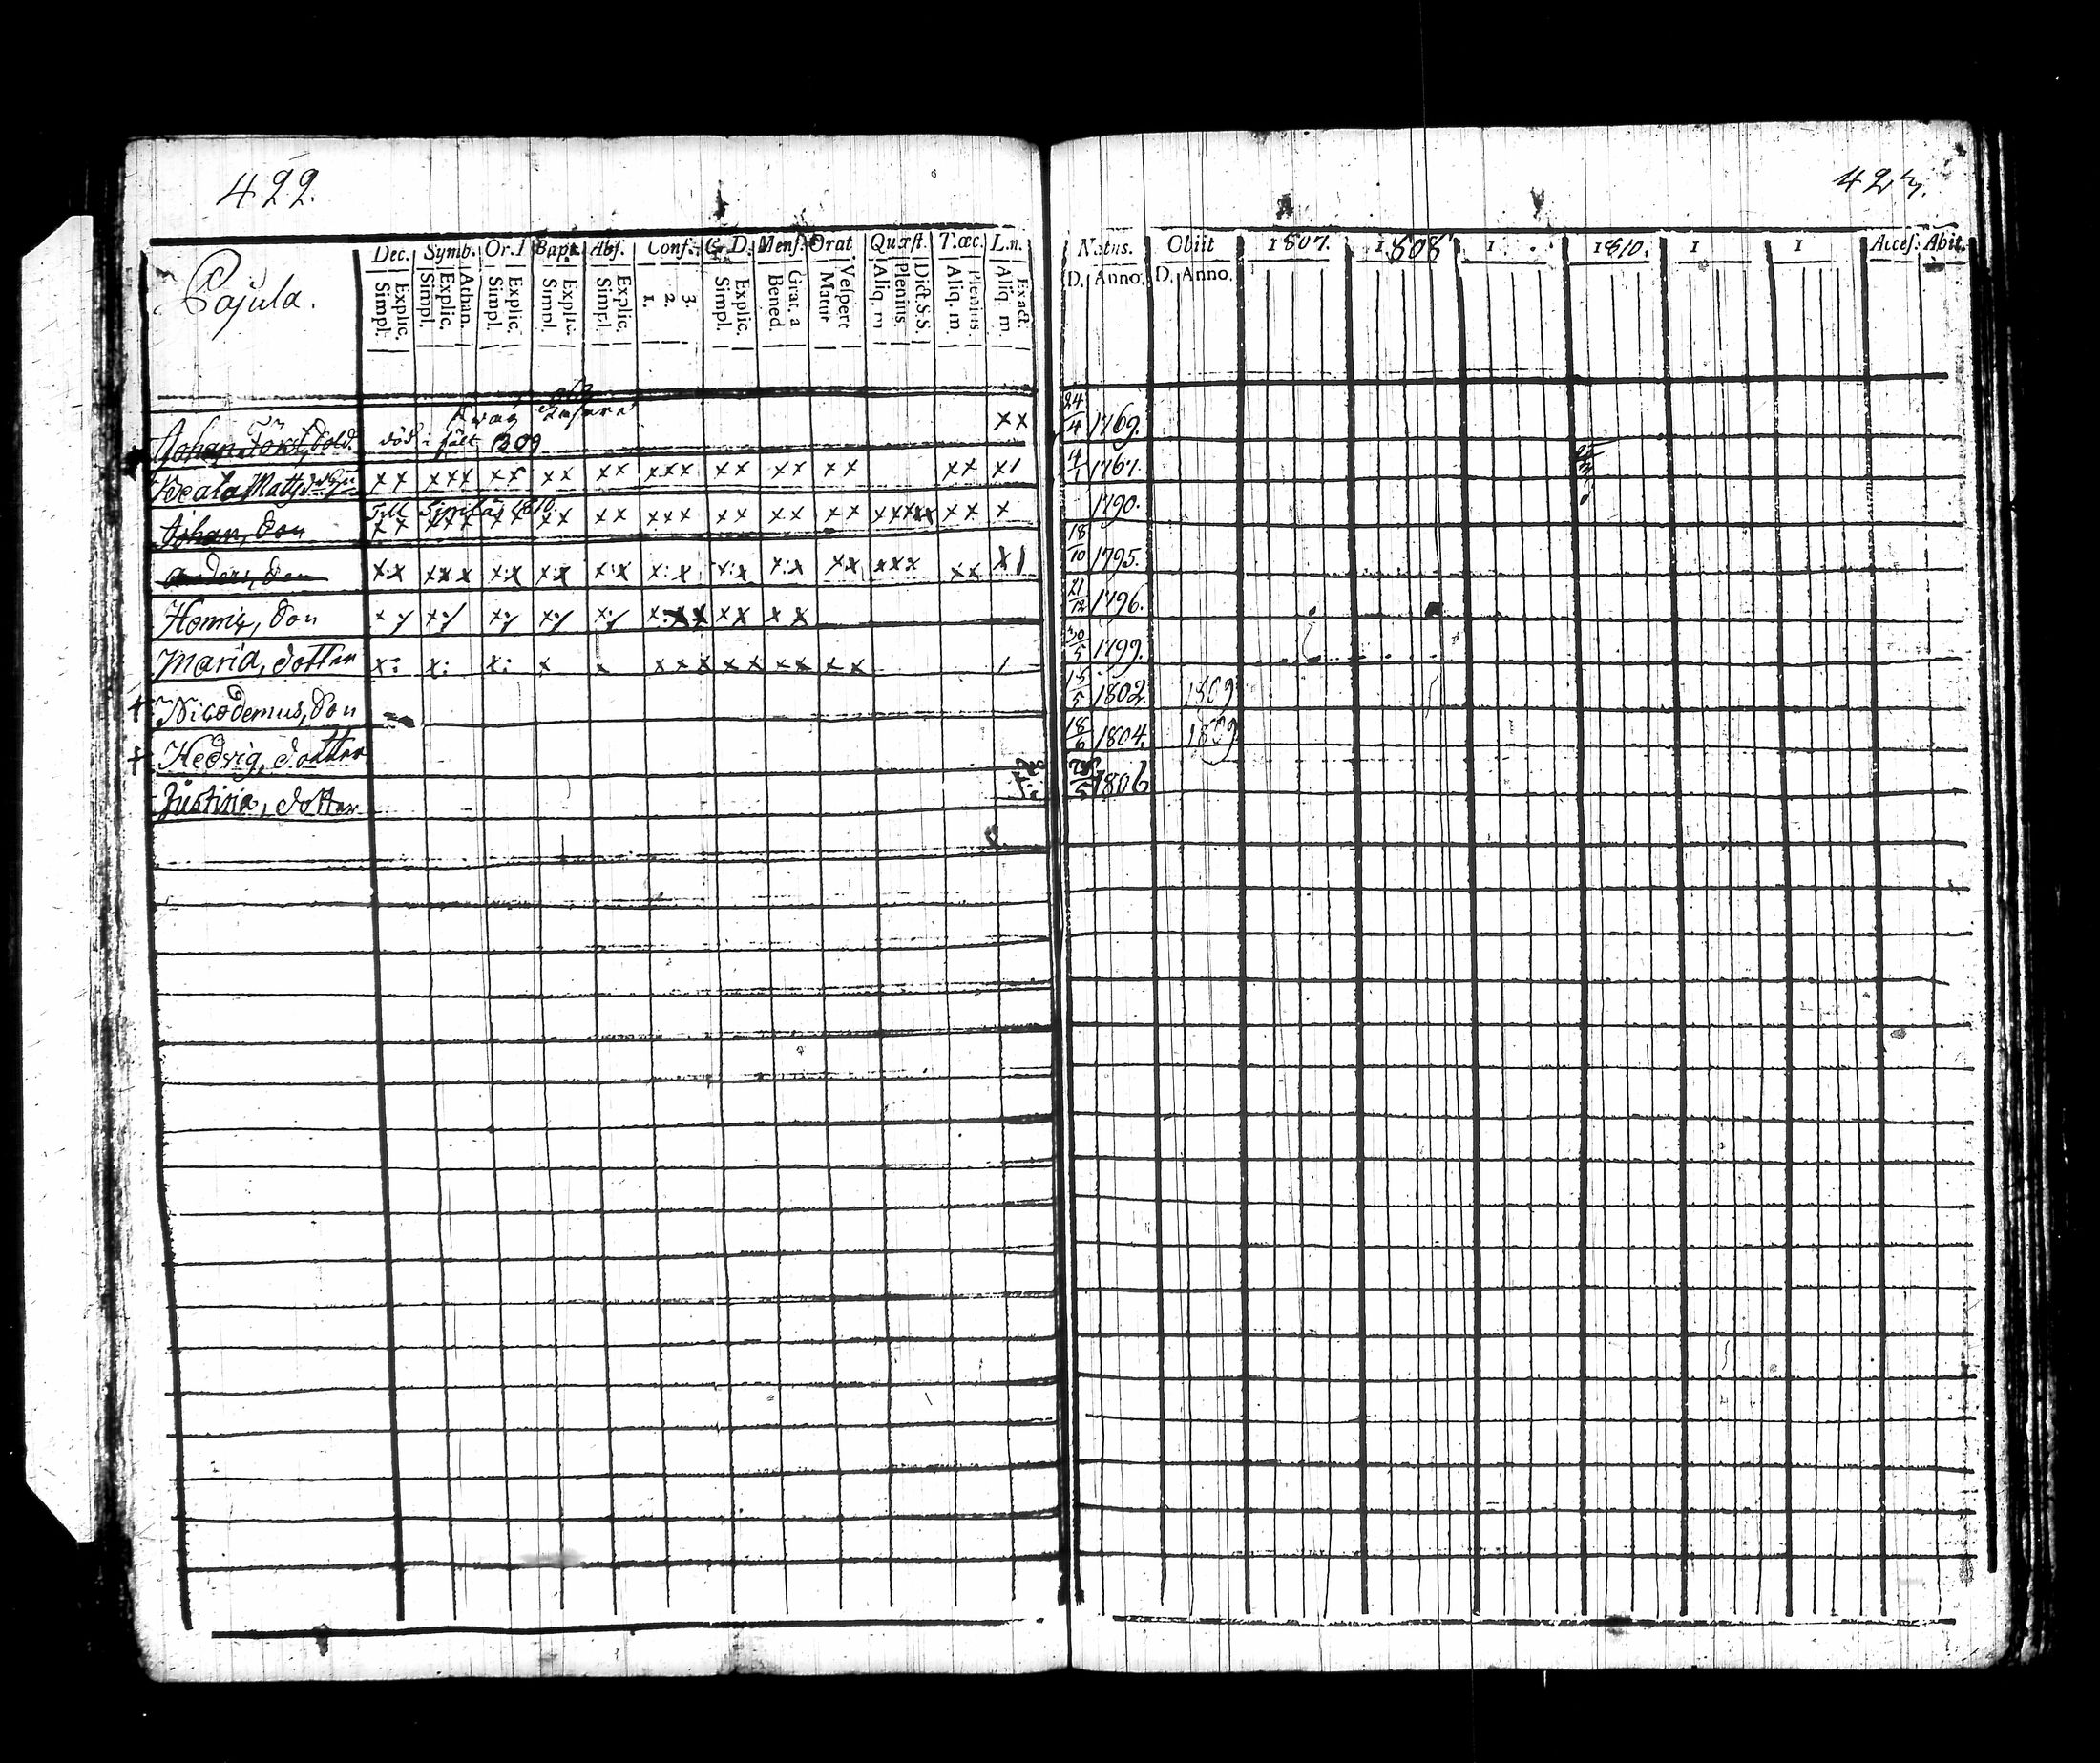 422.
Pajula.
Dec. Symb. Or. Bapt. Abs. Conf. C. D. Mens. Orat Quæst. T.œc. L.n.
Explic. Simpl. Athan. Explic. Simpl. Explic. Simpl. Explic. Simpl. Explic. Simpl. 3. 2. 1. Explic. Simpl. Grat. a Bened. Vespert Matut Dict. S.S. Plenius. Aliq. m Plenius Aliq. m. Exact. Aliq. m.
Johan Först, Sold. död i fält 1809 x x
Beata Matts dr x x x x x x x x x x x x x x x x x x x x x x x x 1
Till 1810.
Johan, Son x x x x x x x x x x x x x x x x x x x x x x x x x x x x x x
Anders, Son x:x x x x x:x x:x x:x x:x x:x x:x x x x x x x x x 1
Son
Maria, dotter x: x: x: x x x x x x x x x x x 1
+ Nicodemus, Son
+ Hedvig, dotter
Justina, dotter
423.
Natus. Obiit 1807. 1808 1 . 1810. 1 1 Acces. Abit.
D. Anno. D. Anno.
24/4 1769.
4/1 1767.
1790.
18/10 1795.
21/12 1796.
30/5 1799.
15/5 1802. 1809
18/6 1804. 1809
1806